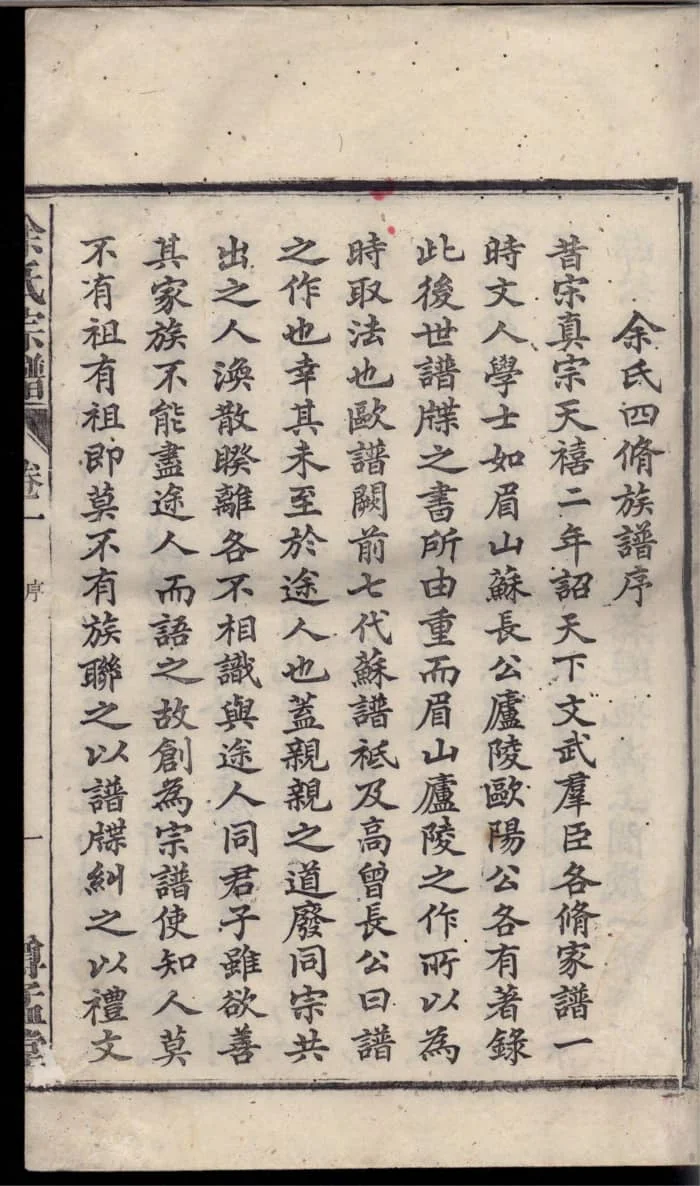 余氏四脩族譜序
昔宋真宗天禧二年詔天下文武羣臣各脩家譜一
時文人學士如眉山蘇長公廬陵歐陽公各有著錄
此後世譜牒之書所由重而眉山廬陵之作所以為
時取法也歐譜闕前七代蘇譜祗及高曾長公曰譜
之作也幸其未至於途人也蓋親親之道廢同宗共
出之人渙散暌離各不相識與途人同君子雖欲善
其家族不能盡途人而語之故創為宗譜使知人莫
不有祖有祖即莫不有族聯之以譜牒糾之以禮文
余氏宗譜 卷一 序 一